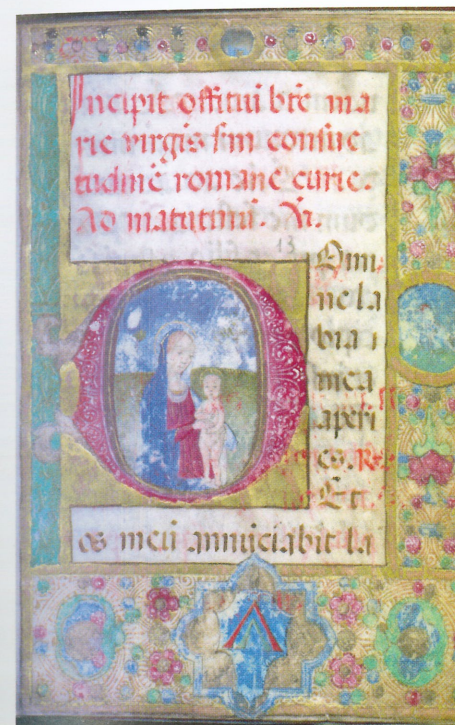 Incipit offitiū btē ma
rie virgīs sm̄ consue
tudinē romanē curie.
Ad matutinū. V̄.
13
DOmi
ne la
bia
mea
aperi
es. R
Et
os meū annūciabit la